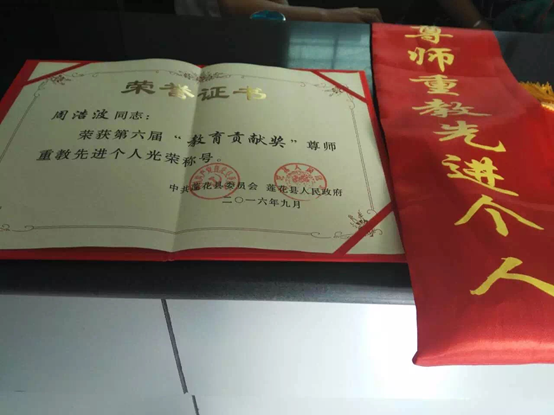 荣誉证书
周浩波 同志:
荣获第六届“教育贡献奖”尊师
重教先进个人光荣称号。
中共莲花县委员会 莲花县人民政府
二〇一六年九月
尊师重教先进个人